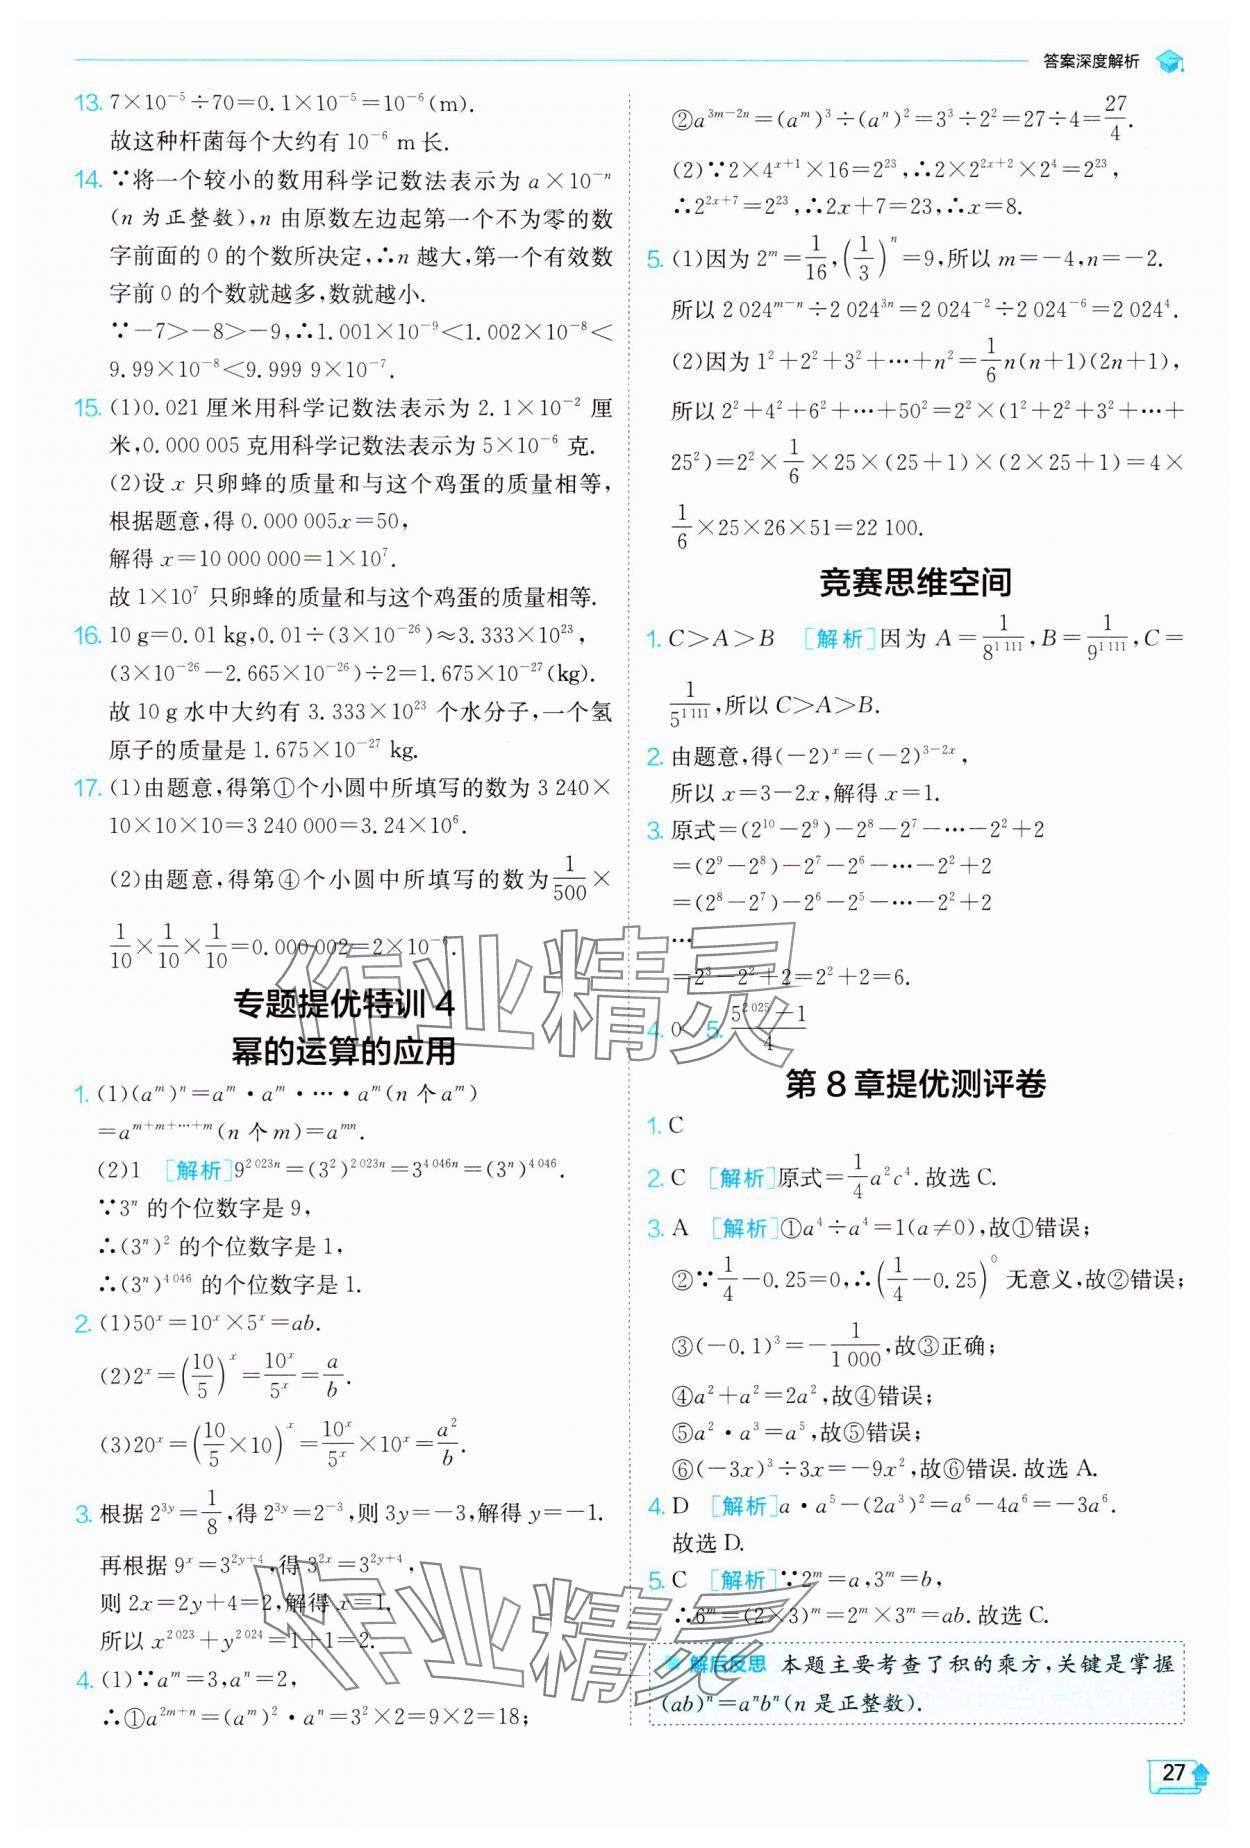 答案深度解析
13. 7×10⁻⁵÷70=0.1×10⁻⁵=10⁻⁶(m).
故这种杆菌每个大约有 10⁻⁶ m 长.
14. ∵将一个较小的数用科学记数法表示为 a×10⁻ⁿ
(n 为正整数),n 由原数左边起第一个不为零的数
字前面的 0 的个数所决定,∴n 越大,第一个有效数
字前 0 的个数就越多,数就越小.
∵-7>-8>-9,∴1.001×10⁻⁹<1.002×10⁻⁸<
9.99×10⁻⁸<9.999 9×10⁻⁷.
15. (1)0.021 厘米用科学记数法表示为 2.1×10⁻² 厘
米,0.000 005 克用科学记数法表示为 5×10⁻⁶ 克.
(2)设 x 只卵蜂的质量和与这个鸡蛋的质量相等,
根据题意,得 0.000 005x=50,
解得 x=10 000 000=1×10⁷.
故 1×10⁷ 只卵蜂的质量和与这个鸡蛋的质量相等.
16. 10 g=0.01 kg,0.01÷(3×10⁻²⁶)≈3.333×10²³,
(3×10⁻²⁶-2.665×10⁻²⁶)÷2=1.675×10⁻²⁷(kg).
故 10 g 水中大约有 3.333×10²³ 个水分子,一个氢
原子的质量是 1.675×10⁻²⁷ kg.
17. (1)由题意,得第①个小圆中所填写的数为 3 240×
10×10×10=3 240 000=3.24×10⁶.
(2)由题意,得第④个小圆中所填写的数为 1/500 ×
1/10×1/10×1/10=0.000 002=2×10⁻⁶.
专题提优特训 4
幂的运算的应用
1. (1)(a^m)^n=a^m·a^m·…·a^m(n 个 a^m)
=a^(m+m+…+m)(n 个 m)=a^(mn).
(2)1 [解析]9^(2 023n)=(3²)^(2 023n)=3^(4 046n)=(3ⁿ)^(4 046).
∵3ⁿ 的个位数字是 9,
∴(3ⁿ)² 的个位数字是 1,
∴(3ⁿ)^(4 046) 的个位数字是 1.
2. (1)50^x=10^x×5^x=ab.
(2)2^x=(10/5)^x=10^x/5^x=a/b.
(3)20^x=(10/5×10)^x=10^x/5^x×10^x=a²/b.
3. 根据 2^(3y)=1/8,得 2^(3y)=2⁻³,则 3y=-3,解得 y=-1.
再根据 9^x=3^(2y+4),得 3^(2x)=3^(2y+4),
则 2x=2y+4=2,解得 x=1.
所以 x^(2 023)+y^(2 024)=1+1=2.
4. (1)∵a^m=3,a^n=2,
∴①a^(2m+n)=(a^m)²·a^n=3²×2=9×2=18;
②a^(3m-2n)=(a^m)³÷(a^n)²=3³÷2²=27÷4=27/4.
(2)∵2×4^(x+1)×16=2²³,∴2×2^(2x+2)×2⁴=2²³,
∴2^(2x+7)=2²³,∴2x+7=23,∴x=8.
5. (1)因为 2^m=1/16,(1/3)^n=9,所以 m=-4,n=-2.
所以 2 024^(m-n)÷2 024^(3n)=2 024⁻²÷2 024⁻⁶=2 024⁴.
(2)因为 1²+2²+3²+…+n²=1/6 n(n+1)(2n+1),
所以 2²+4²+6²+…+50²=2²×(1²+2²+3²+…+
25²)=2²×1/6×25×(25+1)×(2×25+1)=4×
1/6×25×26×51=22 100.
竞赛思维空间
1. C>A>B [解析]因为 A=1/8^(1 111),B=1/9^(1 111),C=
1/5^(1 111),所以 C>A>B.
2. 由题意,得(-2)^x=(-2)^(3-2x),
所以 x=3-2x,解得 x=1.
3. 原式=(2¹⁰-2⁹)-2⁸-2⁷-…-2²+2
=(2⁹-2⁸)-2⁷-2⁶-…-2²+2
=(2⁸-2⁷)-2⁶-2⁵-…-2²+2
…
=2³-2²+2=2²+2=6.
4. 0 5. (5^(2 025)-1)/4
第 8 章提优测评卷
1. C
2. C [解析]原式=1/4 a²c⁴.故选 C.
3. A [解析]①a⁴÷a⁴=1(a≠0),故①错误;
②∵1/4-0.25=0,∴(1/4-0.25)⁰ 无意义,故②错误;
③(-0.1)³=-1/1 000,故③正确;
④a²+a²=2a²,故④错误;
⑤a²·a³=a⁵,故⑤错误;
⑥(-3x)³÷3x=-9x²,故⑥错误.故选 A.
4. D [解析]a·a⁵-(2a³)²=a⁶-4a⁶=-3a⁶.
故选 D.
5. C [解析]∵2^m=a,3^m=b,
∴6^m=(2×3)^m=2^m×3^m=ab.故选 C.
解后反思 本题主要考查了积的乘方,关键是掌握
(ab)ⁿ=aⁿbⁿ(n 是正整数).
27
作业精灵
作业精灵